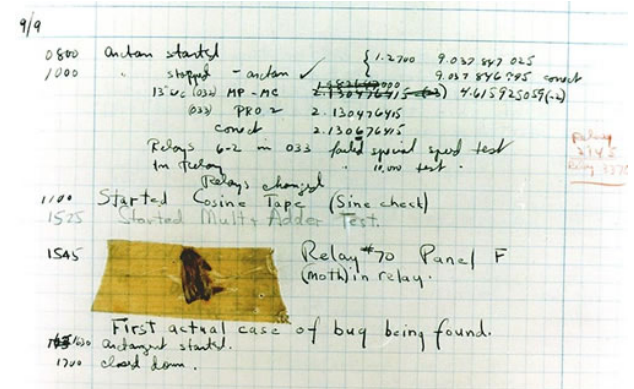 9/9
0800 Antan started
1000 " stopped - antan ✓ { 1.2700 9.037 847 025
9.037 846 795 correct
13" uc (033) MP - MC 2.130476415 4.615925059(-2)
(033) PRO 2 2.130476415
correct 2.130676415
Relays 6-2 in 033 failed special speed test
in Relay " 10,000 test .
Relay
Relays changed
1100 Started Cosine Tape (Sine check)
1525 Started Mult + Adder Test.
1545 Relay #70 Panel F
(moth) in relay.
First actual case of bug being found.
1630 antangent started.
1700 closed down.